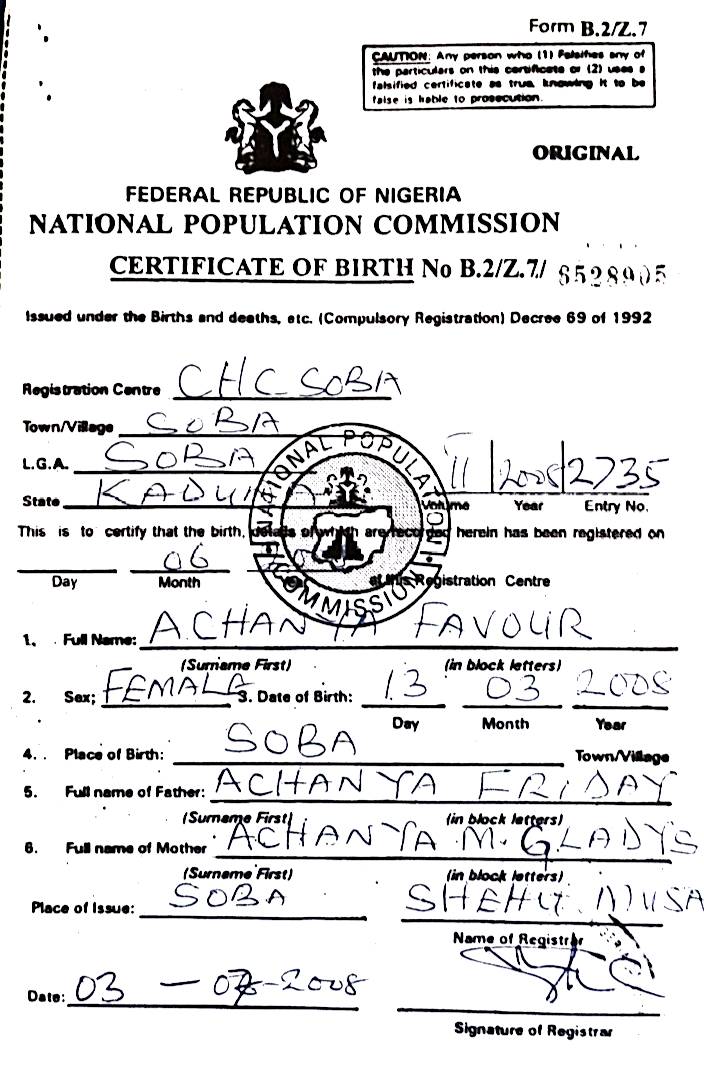 Form B.2/Z.7
CAUTION: Any person who (1) Falsifies any of
the particulars on this certificate or (2) uses a
falsified certificate as true, knowing it to be
false is liable to prosecution.
ORIGINAL
FEDERAL REPUBLIC OF NIGERIA
NATIONAL POPULATION COMMISSION
CERTIFICATE OF BIRTH No B.2/Z.7/ 6528905
Issued under the Births and deaths, etc. (Compulsory Registration) Decree 69 of 1992
Registration Centre CHC SOBA
Town/Village SOBA
L.G.A. SOBA II 2008 2735
State KADUNA Volume Year Entry No.
NATIONAL POPULATION COMMISSION
This is to certify that the birth, details of which are recorded herein has been registered on
06
Day Month at this Registration Centre
1. Full Name: ACHANYA FAVOUR
(Surname First) (in block letters)
2. Sex; FEMALE 3. Date of Birth: 13 03 2008
Day Month Year
4. Place of Birth: SOBA Town/Village
5. Full name of Father: ACHANYA FRIDAY
(Surname First) (in block letters)
6. Full name of Mother ACHANYA M. GLADYS
(Surname First) (in block letters)
Place of Issue: SOBA SHEHU MUSA
Name of Registrar
Date: 03 - -2008
Signature of Registrar